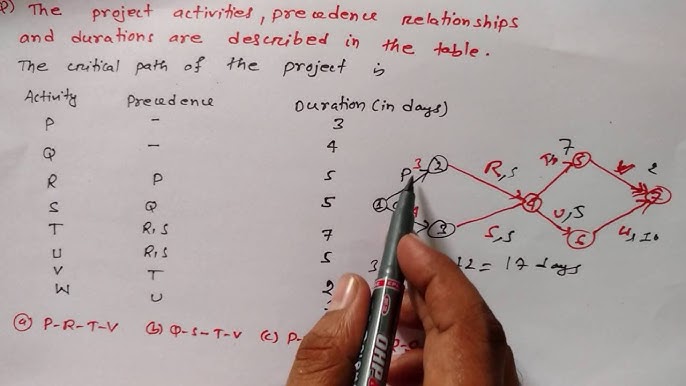 Q) The project activities, precedence relationships
and durations are described in the table.
The critical path of the project is
Activity Precedence Duration (in days)
P - 3
Q - 4
R P 5
S Q 5
T R,S 7
U R,S 5
V T 2
W U
P 3 2 R,5 7 5 2
1 4 4 7
3 S,5 U,5 6 10
3 12 = 17 days
(a) P-R-T-V (b) Q-S-T-V (c) P-
OHP